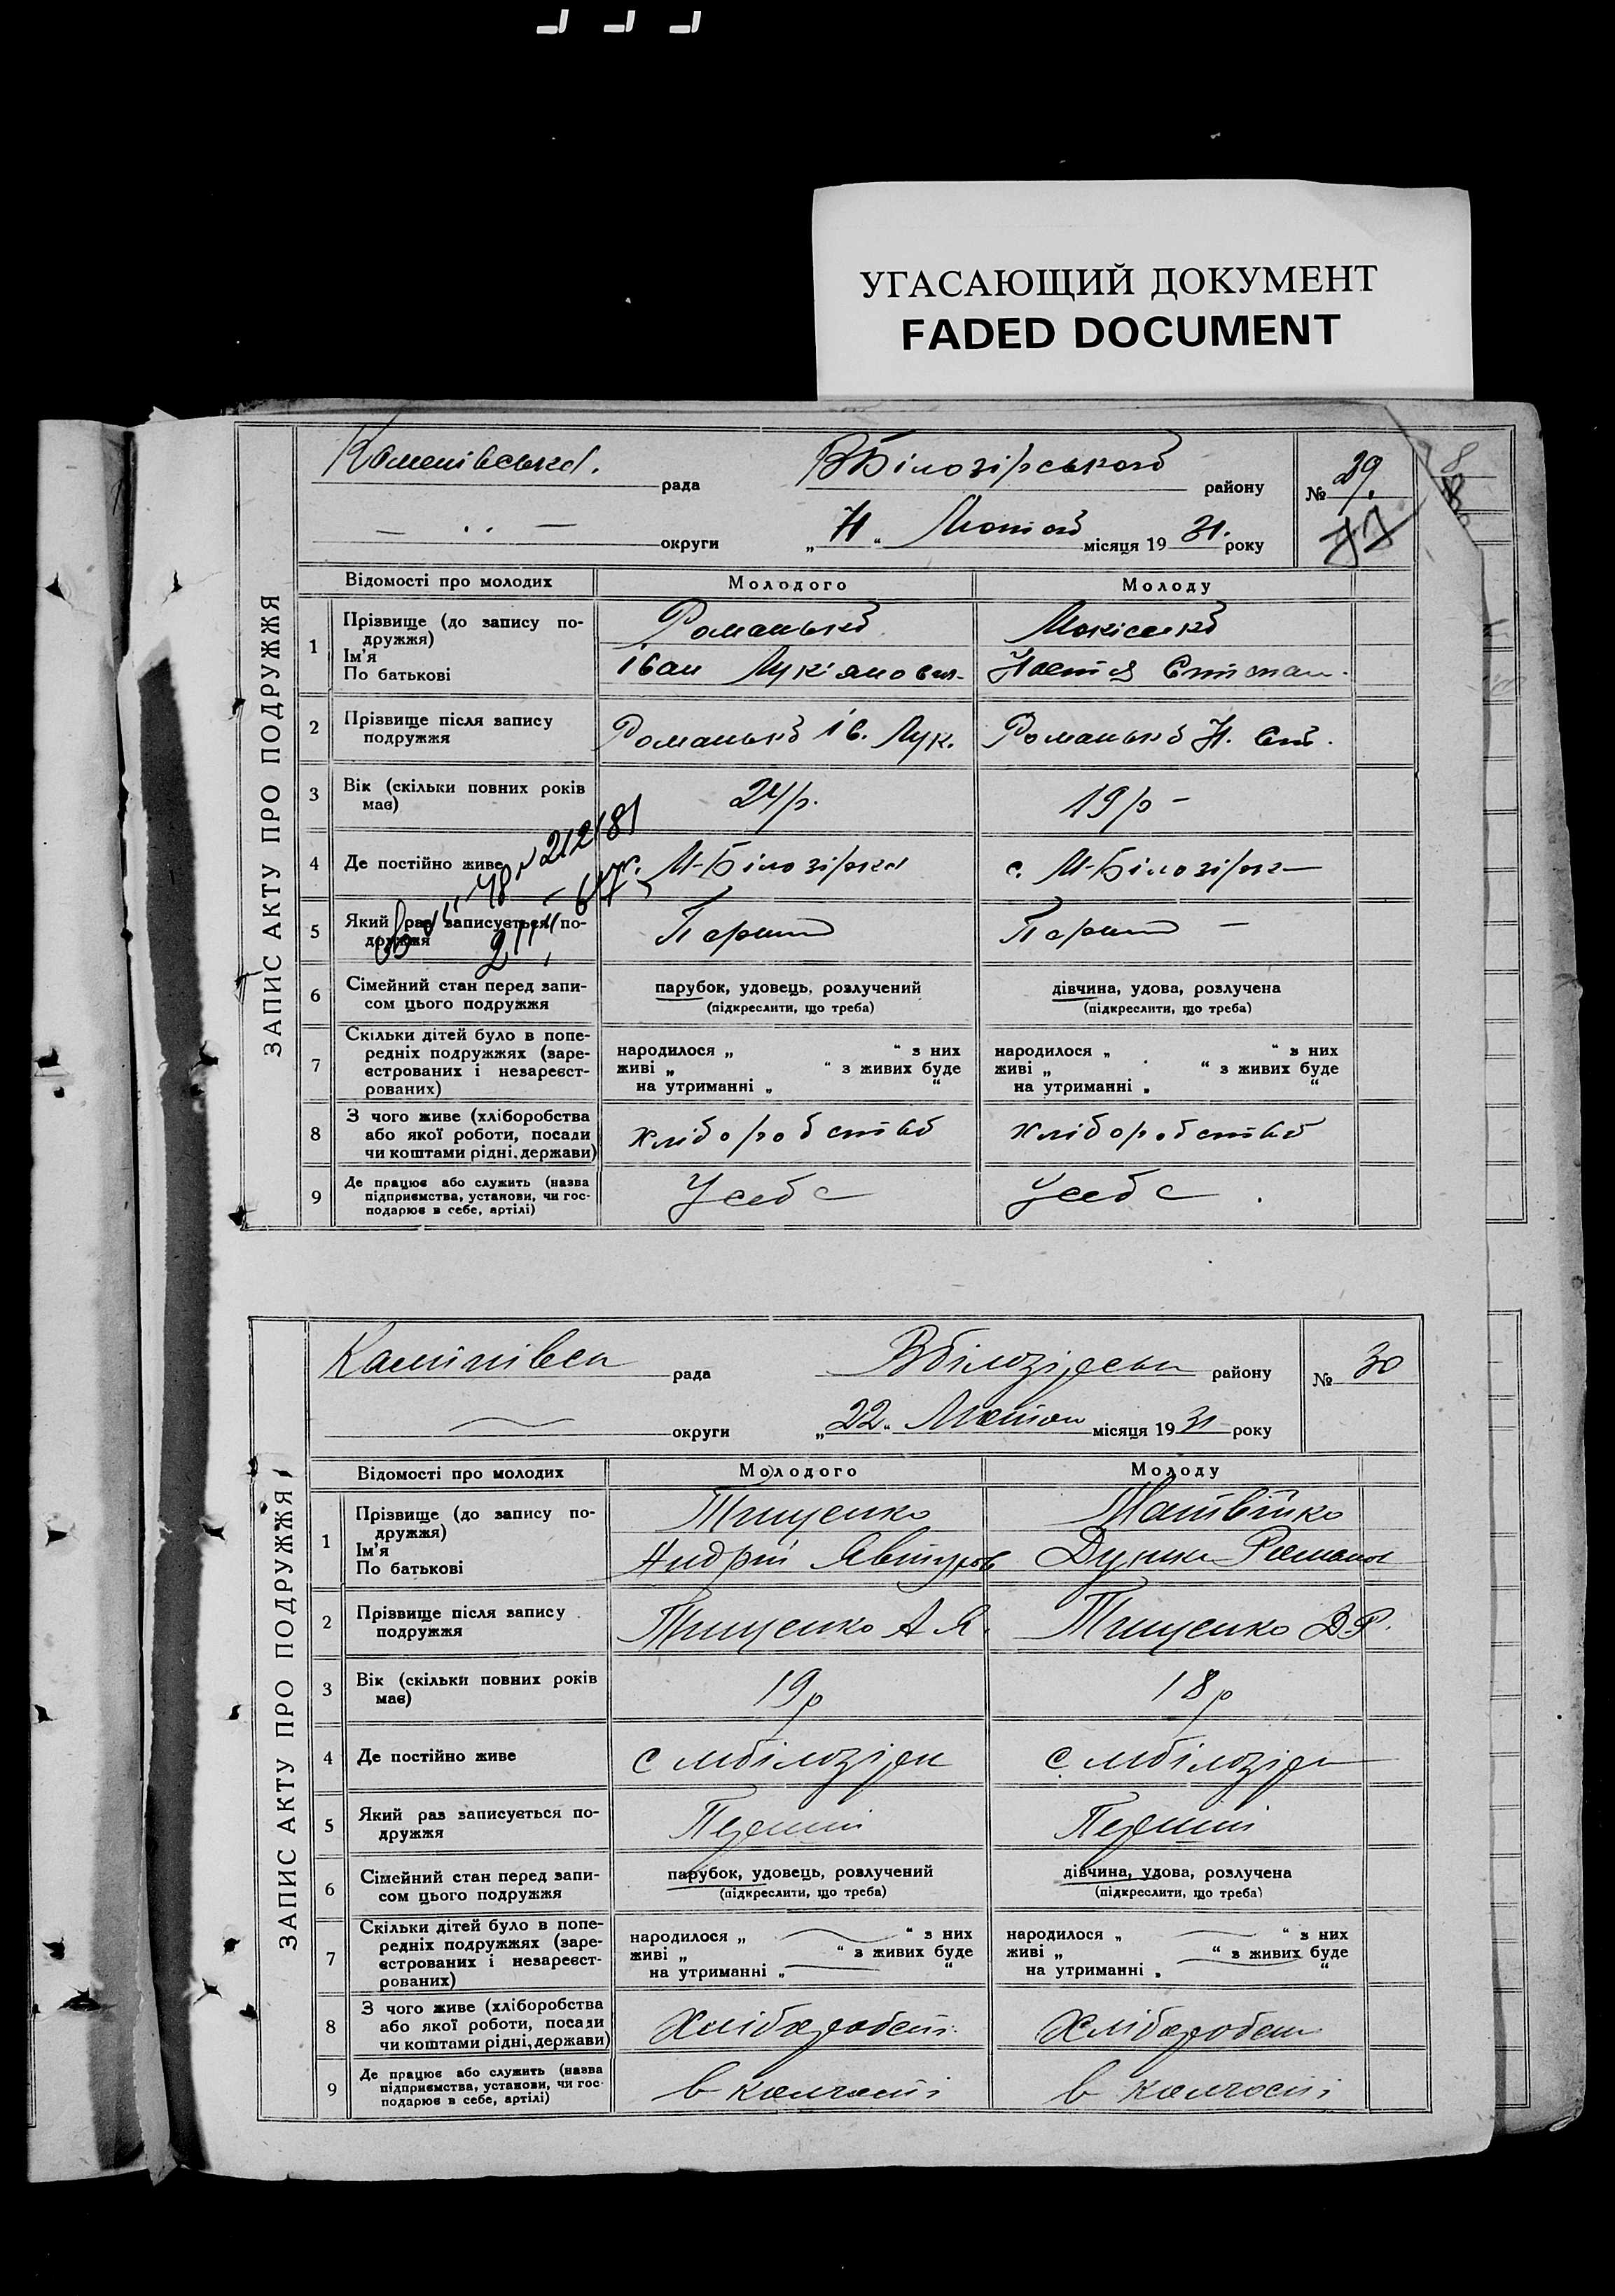 УГАСАЮЩИЙ ДОКУМЕНТ
FADED DOCUMENT
ЗАПИС АКТУ ПРО ПОДРУЖЖЯ
рада ВБілозірського району № 29.
округи „ “ Лютого місяця 19 31. року
Відомості про молодих Молодого Молоду
1 Прізвище (до запису подружжя) Романько Мокієнко
Ім'я
По батькові Іван Лукіянович
2 Прізвище після запису подружжя Романько Ів. Лук. Романько Н.
3 Вік (скільки повних років має) 24/р. 19 р –
4 Де постійно живе М-Білозірка с. М-Білозірка
5 Який раз записується подружжя Перший Перший –
6 Сімейний стан перед записом цього подружжя парубок, удовець, розлучений дівчина, удова, розлучена
(підкреслити, що треба) (підкреслити, що треба)
7 Скільки дітей було в попередніх подружжях (зареєстрованих і незареєстрованих) народилося „ “ з них народилося „ “ з них
живі „ “ з живих буде живі „ “ з живих буде
на утриманні „ “ на утриманні „ “
8 З чого живе (хліборобства або якої роботи, посади чи коштами рідні, держави) хліборобство хліборобство
9 Де працює або служить (назва підприємства, установи, чи господарює в себе, артілі) У себе У себе
ЗАПИС АКТУ ПРО ПОДРУЖЖЯ
рада району № 30
округи „22“ Лютого місяця 19 31 року
Відомості про молодих Молодого Молоду
1 Прізвище (до запису подружжя) Тищенко Матвійко
Ім'я
По батькові Андрій Роман
2 Прізвище після запису подружжя Тищенко А Я. Тищенко Д.Р.
3 Вік (скільки повних років має) 19р 18р
4 Де постійно живе с мбілозірк с. мбілозірк
5 Який раз записується подружжя Перший Перший
6 Сімейний стан перед записом цього подружжя парубок, удовець, розлучений дівчина, удова, розлучена
(підкреслити, що треба) (підкреслити, що треба)
7 Скільки дітей було в попередніх подружжях (зареєстрованих і незареєстрованих) народилося „ “ з них народилося „ “ з них
живі „ “ з живих буде живі „ “ з живих буде
на утриманні „ “ на утриманні „ “
8 З чого живе (хліборобства або якої роботи, посади чи коштами рідні, держави) Хліборобст Хліборобст
9 Де працює або служить (назва підприємства, установи, чи господарює в себе, артілі) в колгоспі в колгоспі